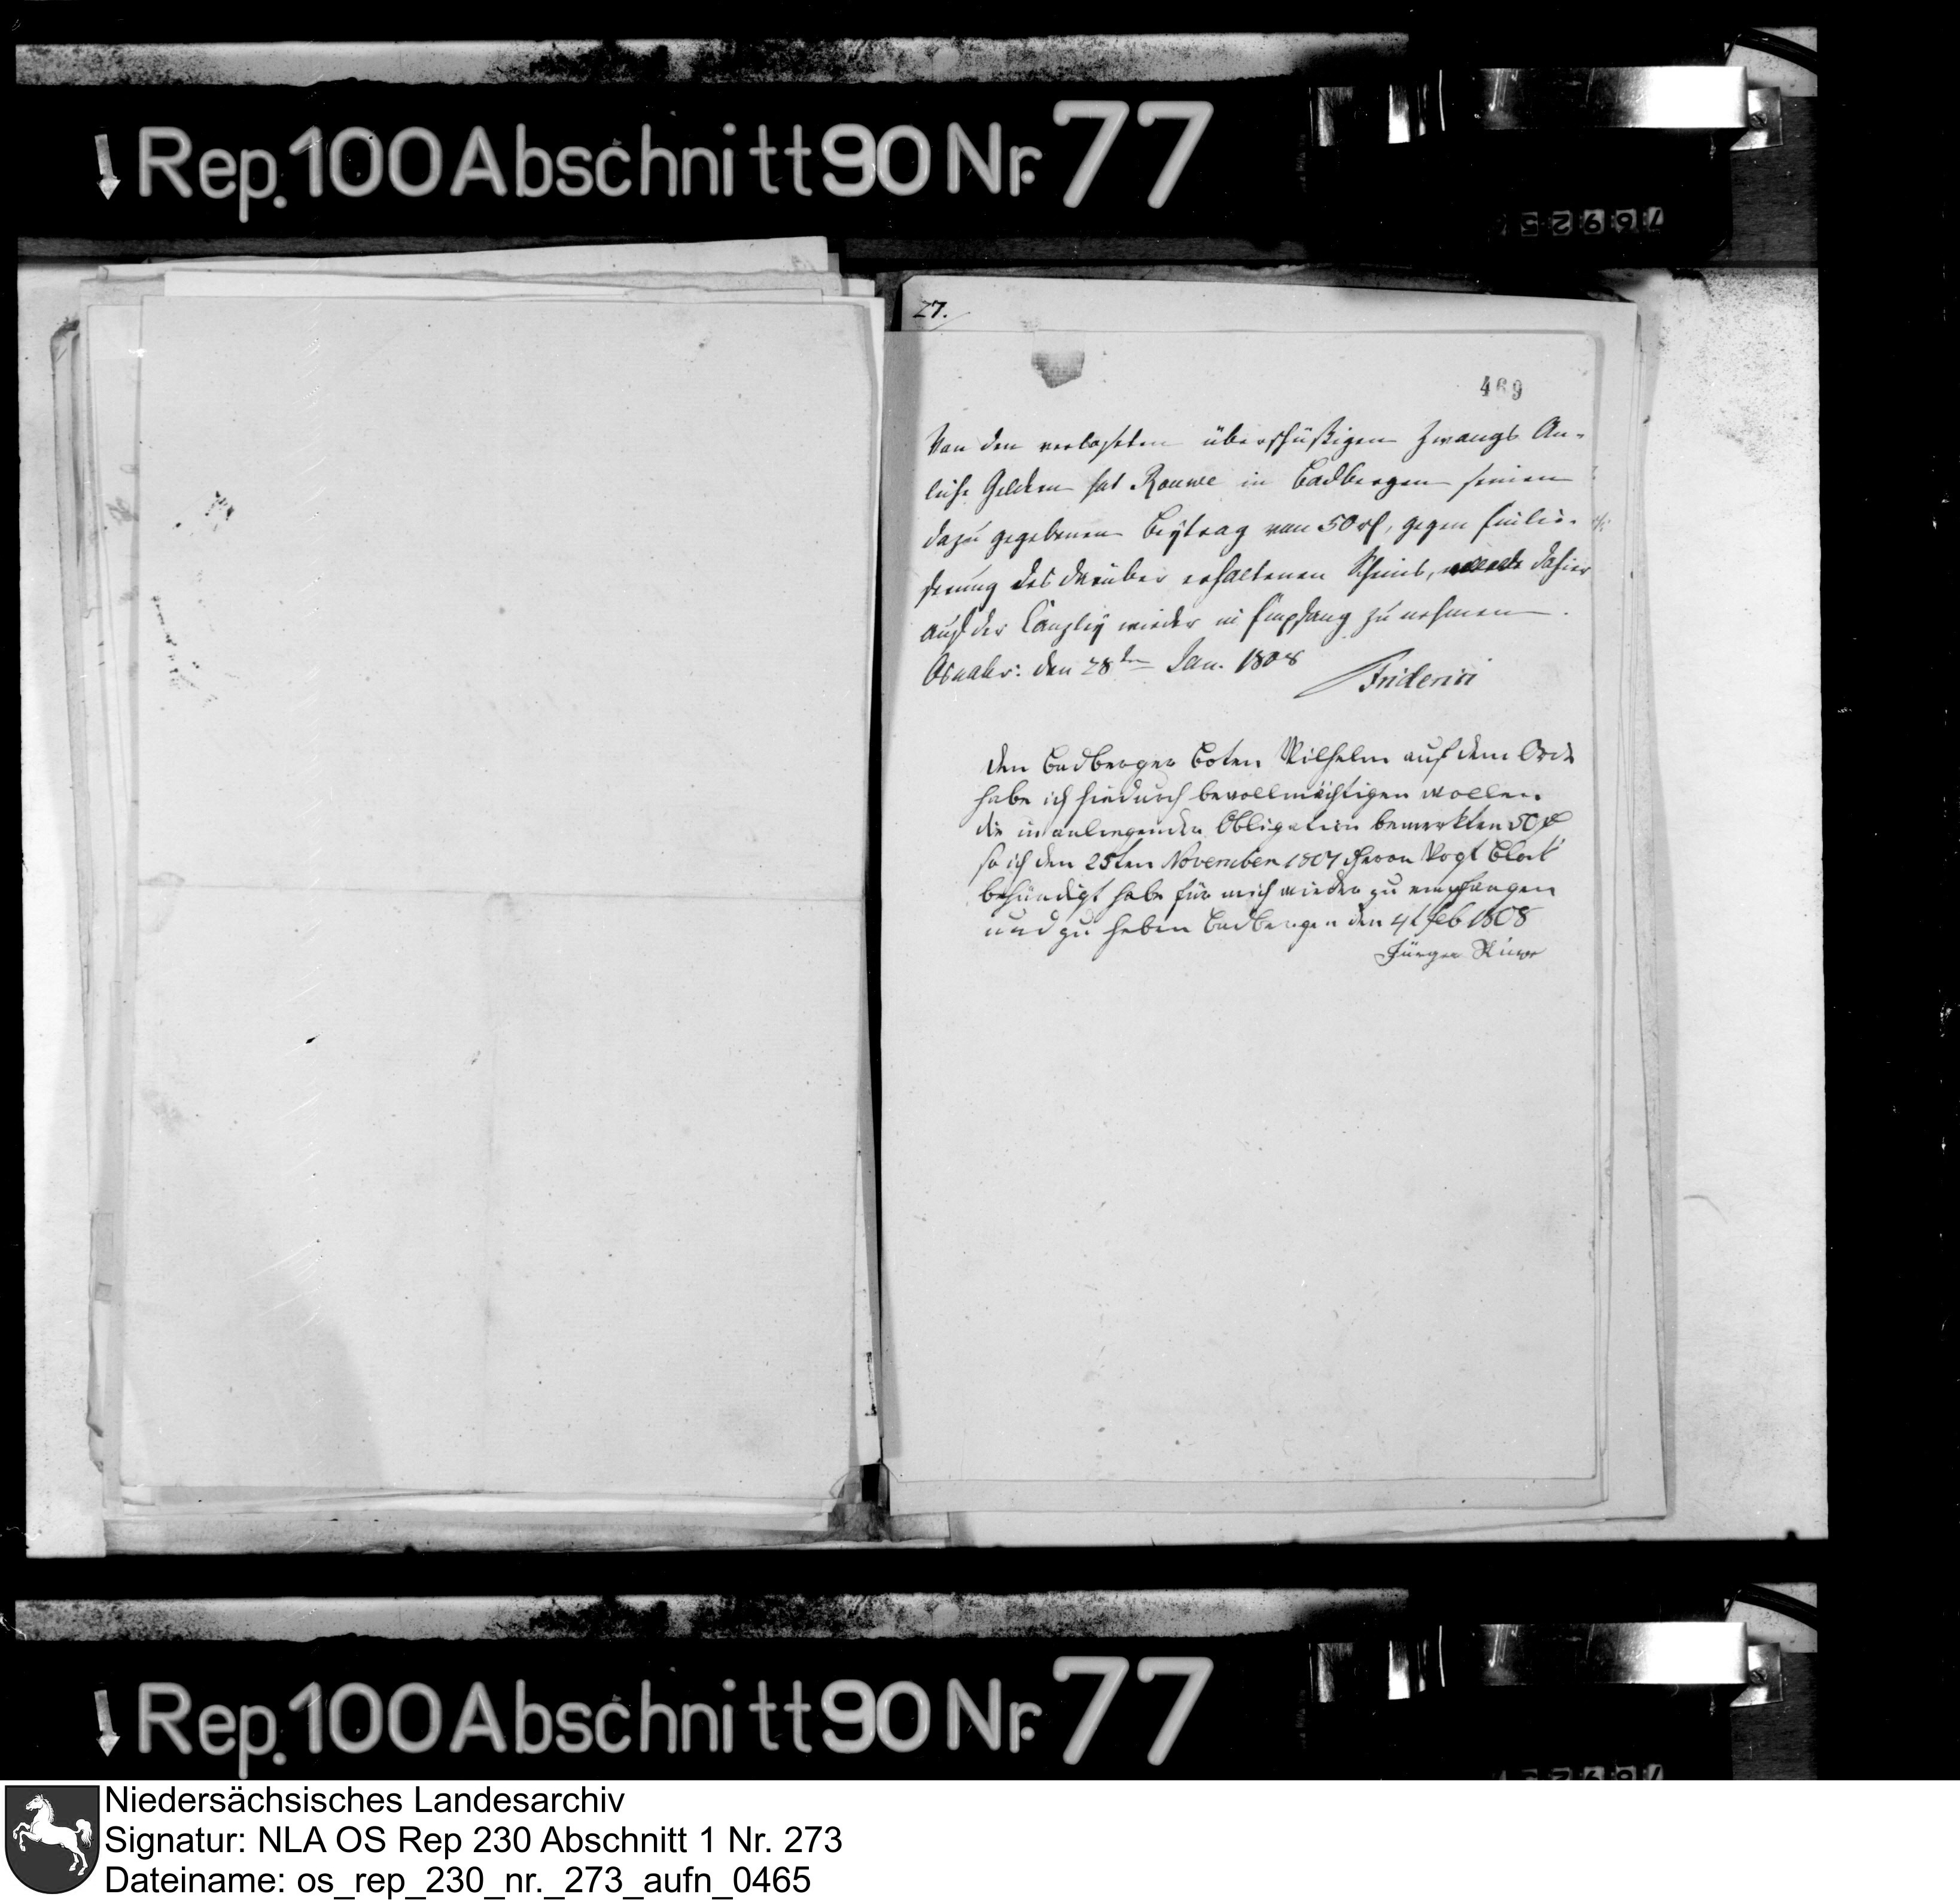 Rep. 100 Abschnitt 90 Nr. 77
76925
27.
469
Von den verloseten überschüßigen Zwangs An-
leihe Geldern hat Rouwe in Badbergen seinen
dazu gegebenen Beytrag von 50 rl, gegen Einlie-
ferung des darüber erhaltenen Scheins, dahier
auf der Canzley wieder in Empfang zu nehmen.
Osnabr: den 28ten Jan. 1808
Friderici
Den Badberger Boten Wilhelm auf dem Orde
habe ich hiedurch bevollmächtigen wollen
die in anliegenden Obligation bemerkten 50 rl
so ich den 25ten November 1807 Herrn Vogt
behändigt habe für mich wieder zu empfangen
und zu heben Badbergen den 4t Feb 1808
Jürgen
Rep. 100 Abschnitt 90 Nr. 77
Niedersächsisches Landesarchiv
Signatur: NLA OS Rep 230 Abschnitt 1 Nr. 273
Dateiname: os_rep_230_nr._273_aufn_0465